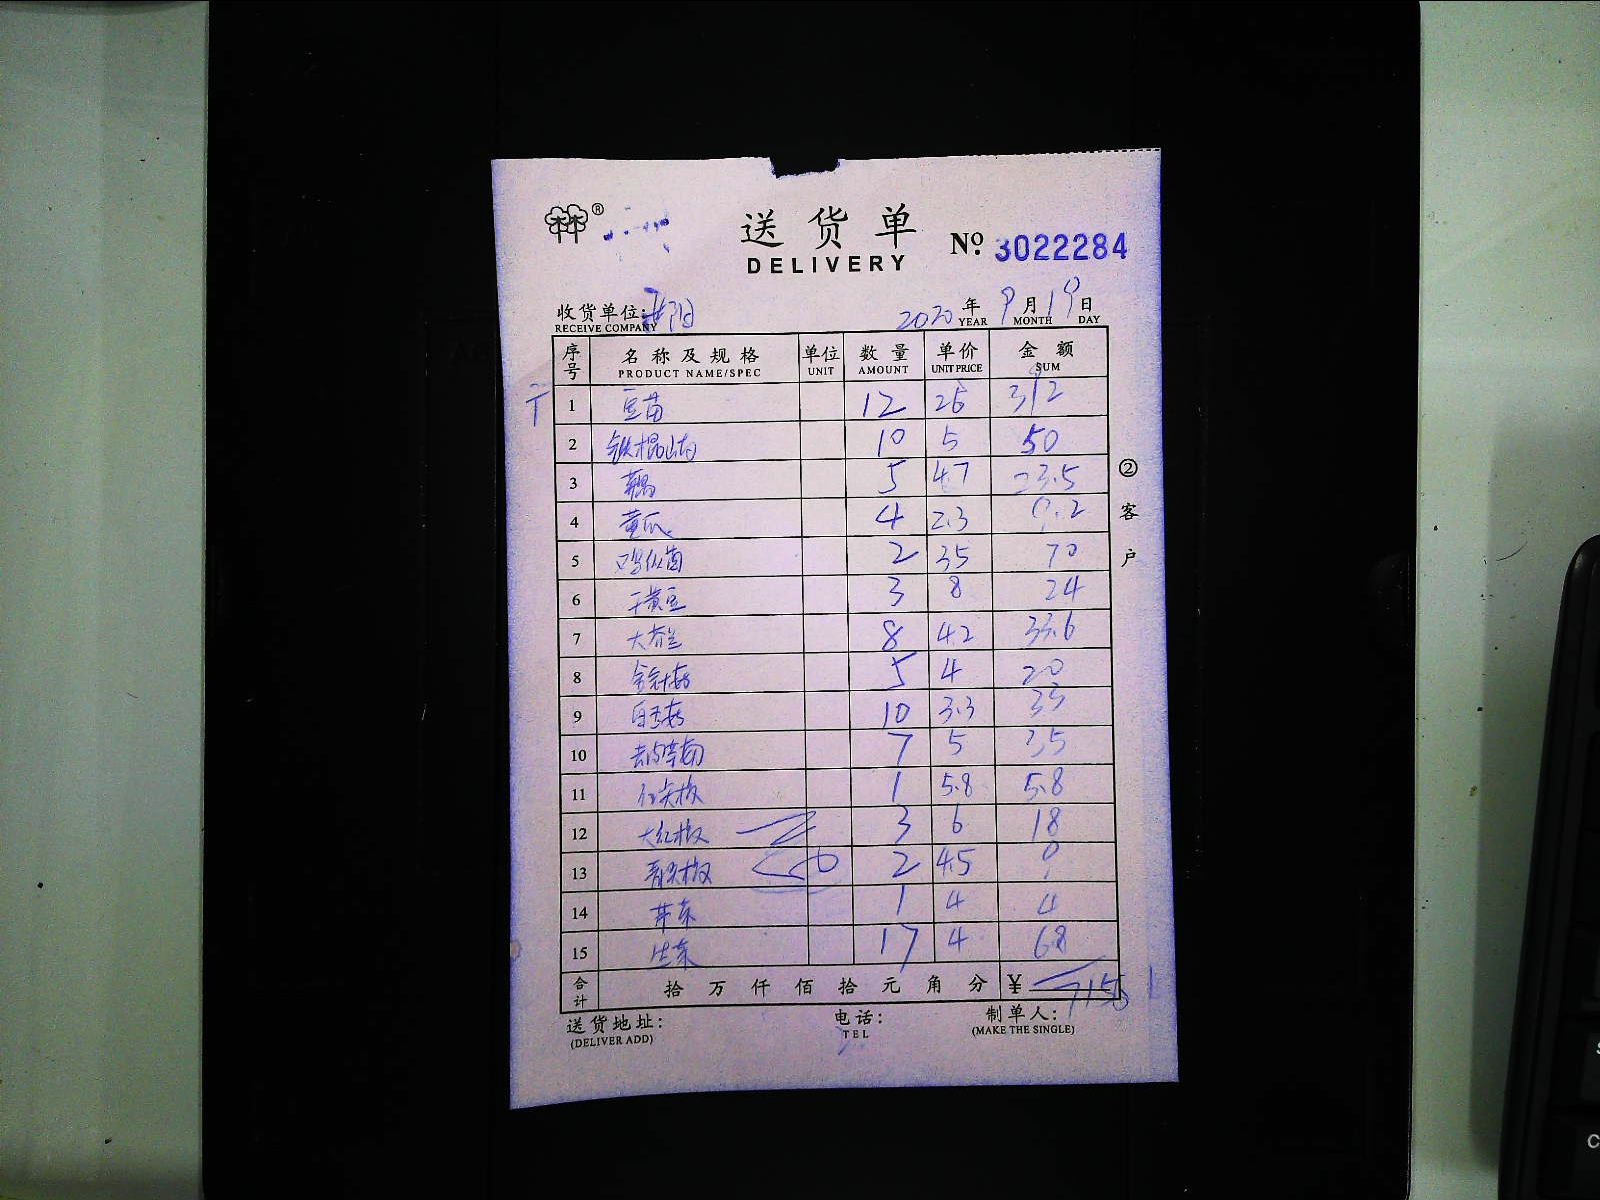 ®
送货单 № 3022284
DELIVERY
收货单位: 2020 年 9 月 19 日
RECEIVE COMPANY YEAR MONTH DAY
序号 名称及规格 单位 数量 单价 金额
PRODUCT NAME/SPEC UNIT AMOUNT UNIT PRICE SUM
1 豆苗 12 26 312
2 铁棍山药 10 5 50
3 藕 5 4.7 23.5
4 黄瓜 4 2.3 9.2
5 鸡枞菌 2 35 70
6 干黄豆 3 8 24
7 8 4.2 33.6
8 金针菇 5 4 20
9 白玉菇 10 3.3 33
10 7 5 35
11 红尖椒 1 5.8 5.8
12 大红椒 3 6 18
13 青尖椒 2 4.5 9
14 芹菜 1 4 4
15 生菜 17 4 68
合计 拾 万 仟 佰 拾 元 角 分 ¥ 715.1
送货地址: 电话: 制单人:
(DELIVER ADD) TEL (MAKE THE SINGLE)
② 客户